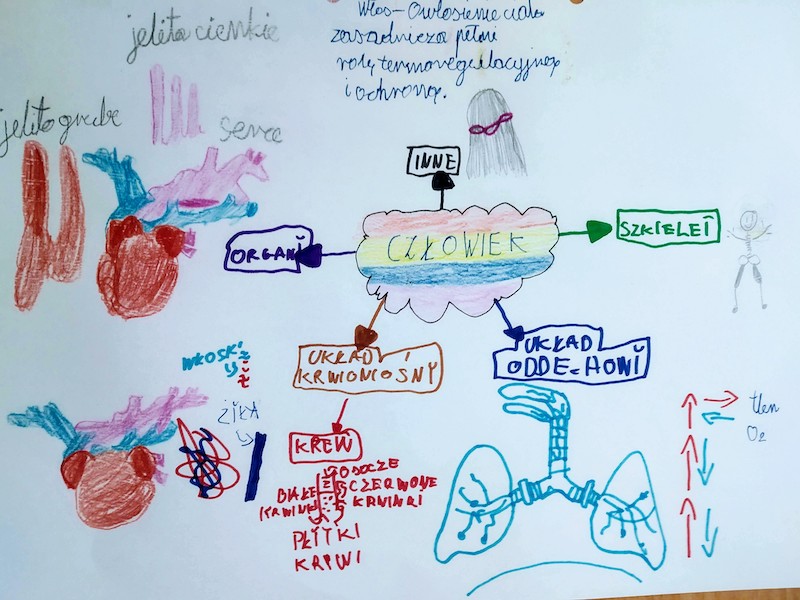 Włos-Owłosienie ciała
zasadniczą pełni
rolę termoregulacyjną
i ochroną.
jelita cienkie
jelito grube
serce
INNE
CZŁOWIEK
SZKIELET
ORGANY
UKŁAD
KRWIONIOŚNY
UKŁAD
ODDE-HOWY
WŁOSKI
ŻYŁA
KREW
OSOCZE
BIAŁE
CZERWONE
KRWINKI
PŁYTKI
KRWI
tlen
O2